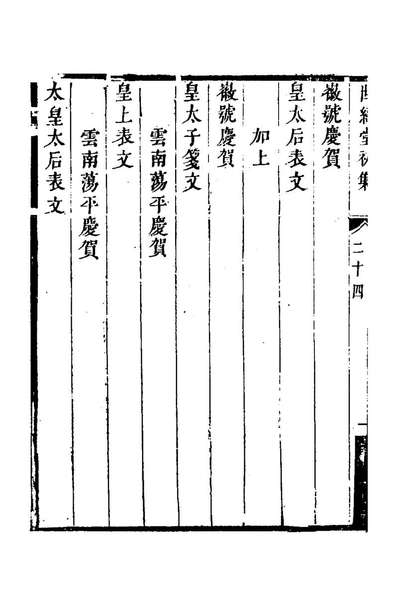 世經堂初集
二十四
徽號慶賀
皇太后表文
加上
徽號慶賀
皇太子箋文
雲南蕩平慶賀
皇上表文
雲南蕩平慶賀
太皇太后表文